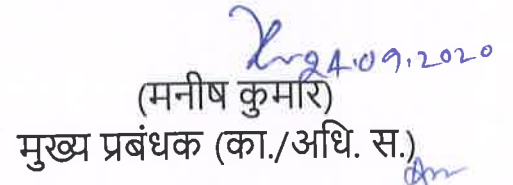 24.09.2020
(मनीष कुमार)
मुख्य प्रबंधक (का./अधि. स.)